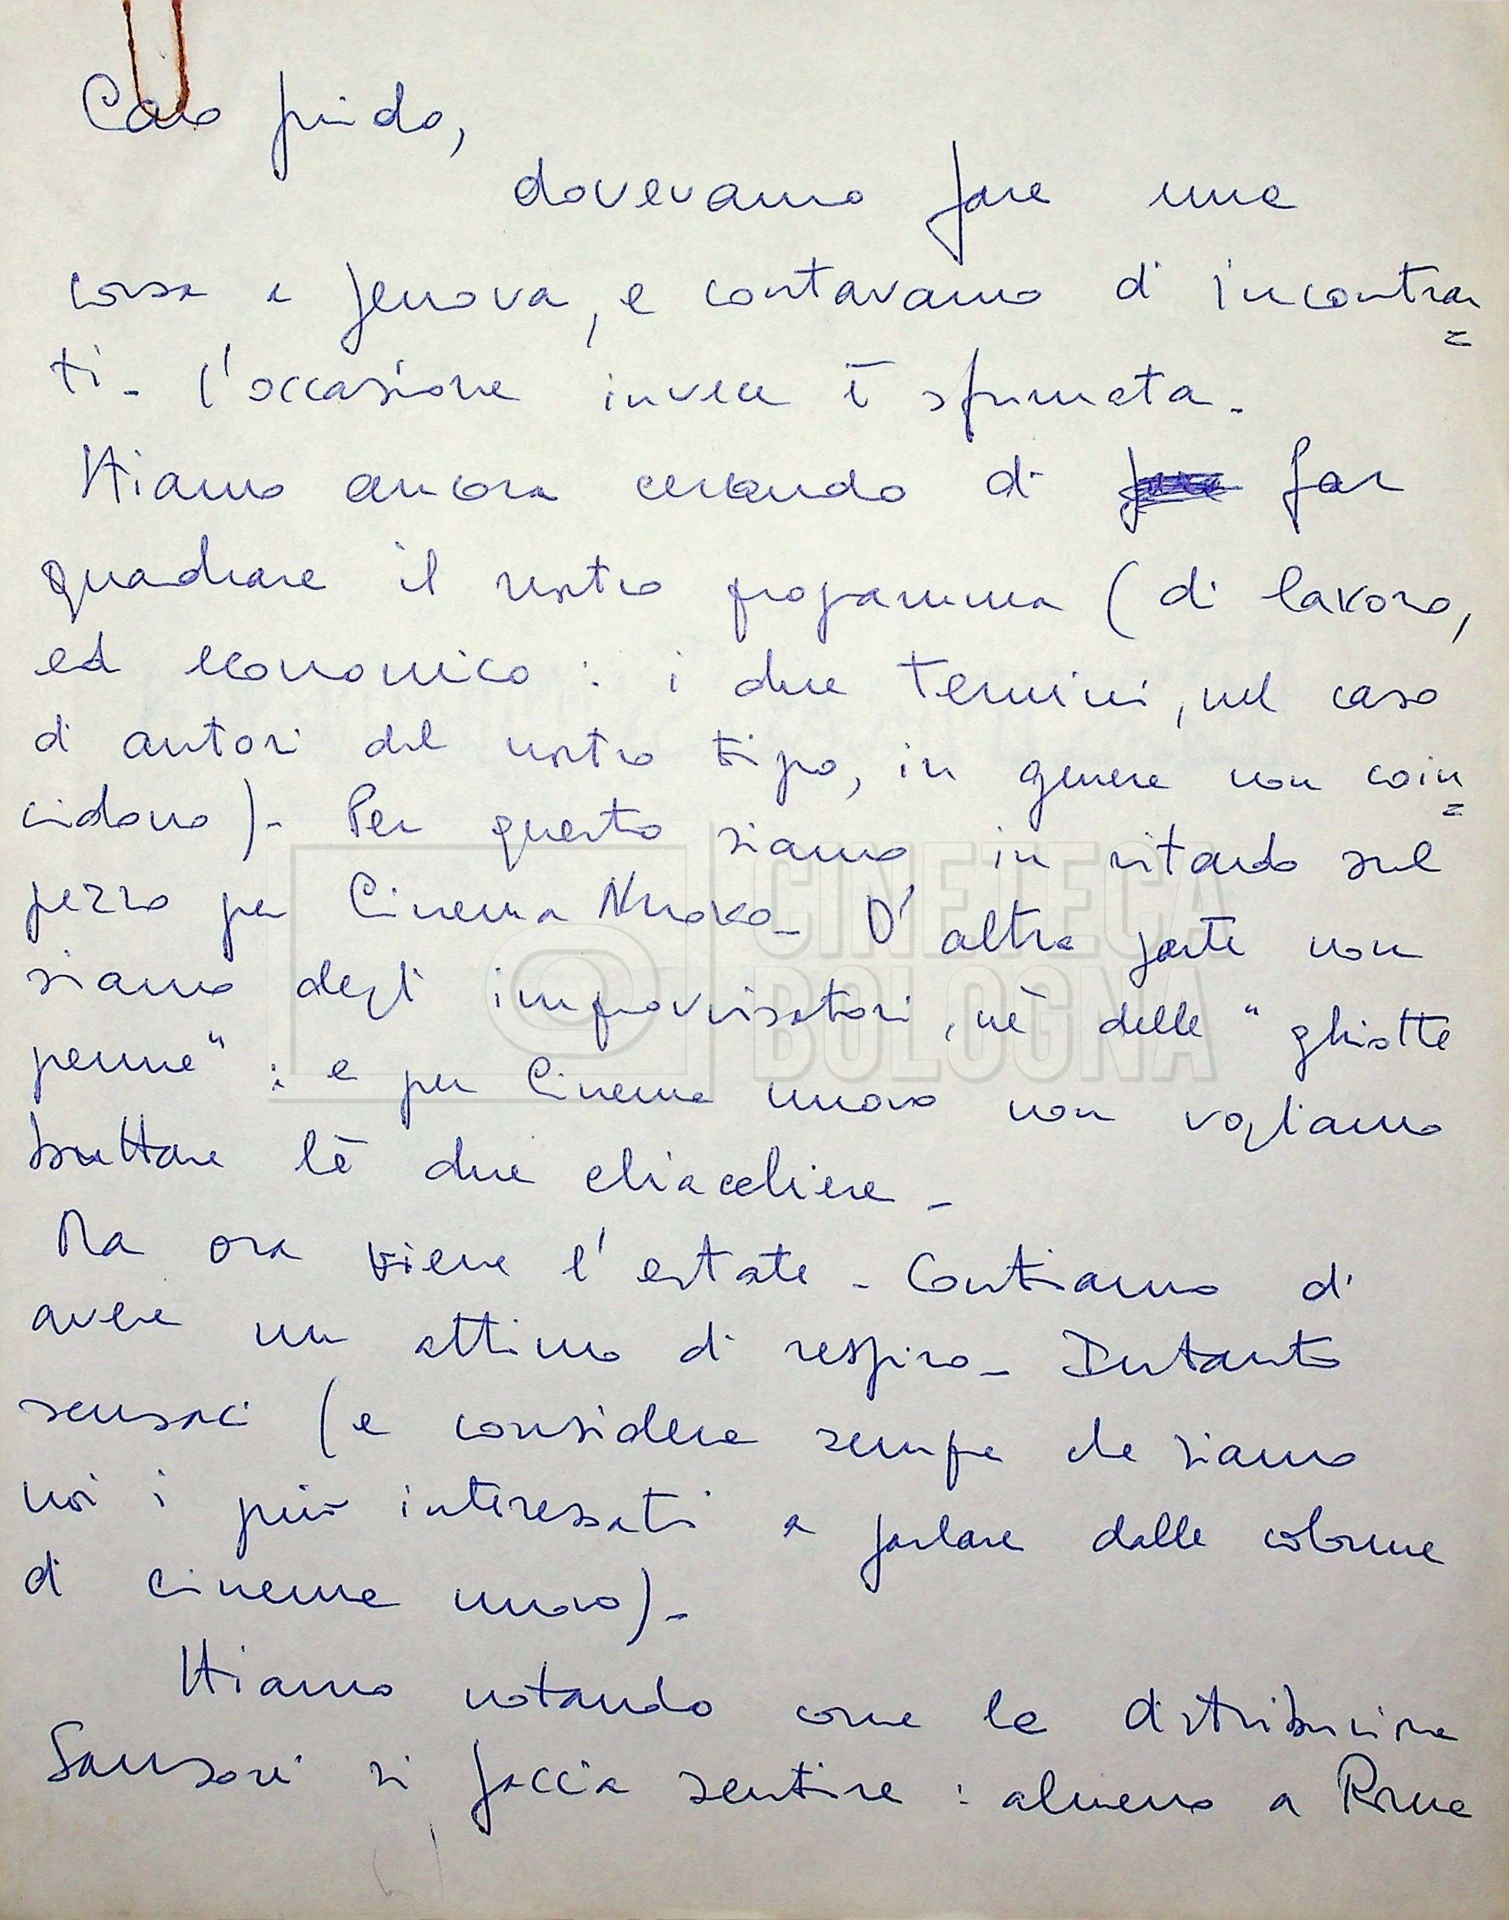 Caro Guido,
dovevamo fare una
corsa a Genova, e contavamo di incontrar=
ti. L'occasione invece è sfumata.
Stiamo ancora cercando di far
quadrare il nostro programma (di lavoro,
ed economico: i due termini, nel caso
di autori del nostro tipo, in genere non coin=
cidono). Per questo siamo in ritardo sul
pezzo per Cinema Nuovo. D'altra parte non
siamo degli improvvisatori, nè delle "ghiotte
penne": e per Cinema nuovo non vogliamo
buttare lè due chiacchiere.
Ma ora viene l'estate. Contiamo di
avere un attimo di respiro. Intanto
scusaci (e considera sempre che siamo
noi i più interessati a parlare dalle colonne
di cinema nuovo).
Stiamo notando come la distribuzione
Sansoni si faccia sentire: almeno a Roma
CINETECA
BOLOGNA